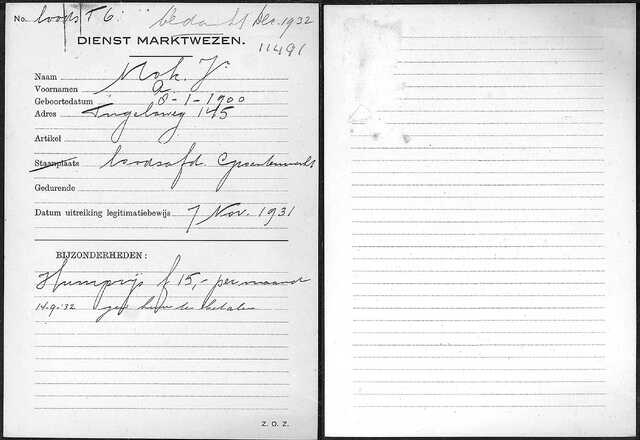 No. loods T 6. bedankt Dec. 1932
DIENST MARKTWEZEN.
11491
Naam Mok, J.
Voornamen
Geboortedatum 8-1-1900
Adres 145
Artikel
Staanplaats loodsafd. Groentenmarkt
Gedurende
Datum uitreiking legitimatiebewijs 7 Nov. 1931
BIJZONDERHEDEN:
Huurprijs f 15,- per maand
14-9-'32 geen huur te betalen
Z. O. Z.